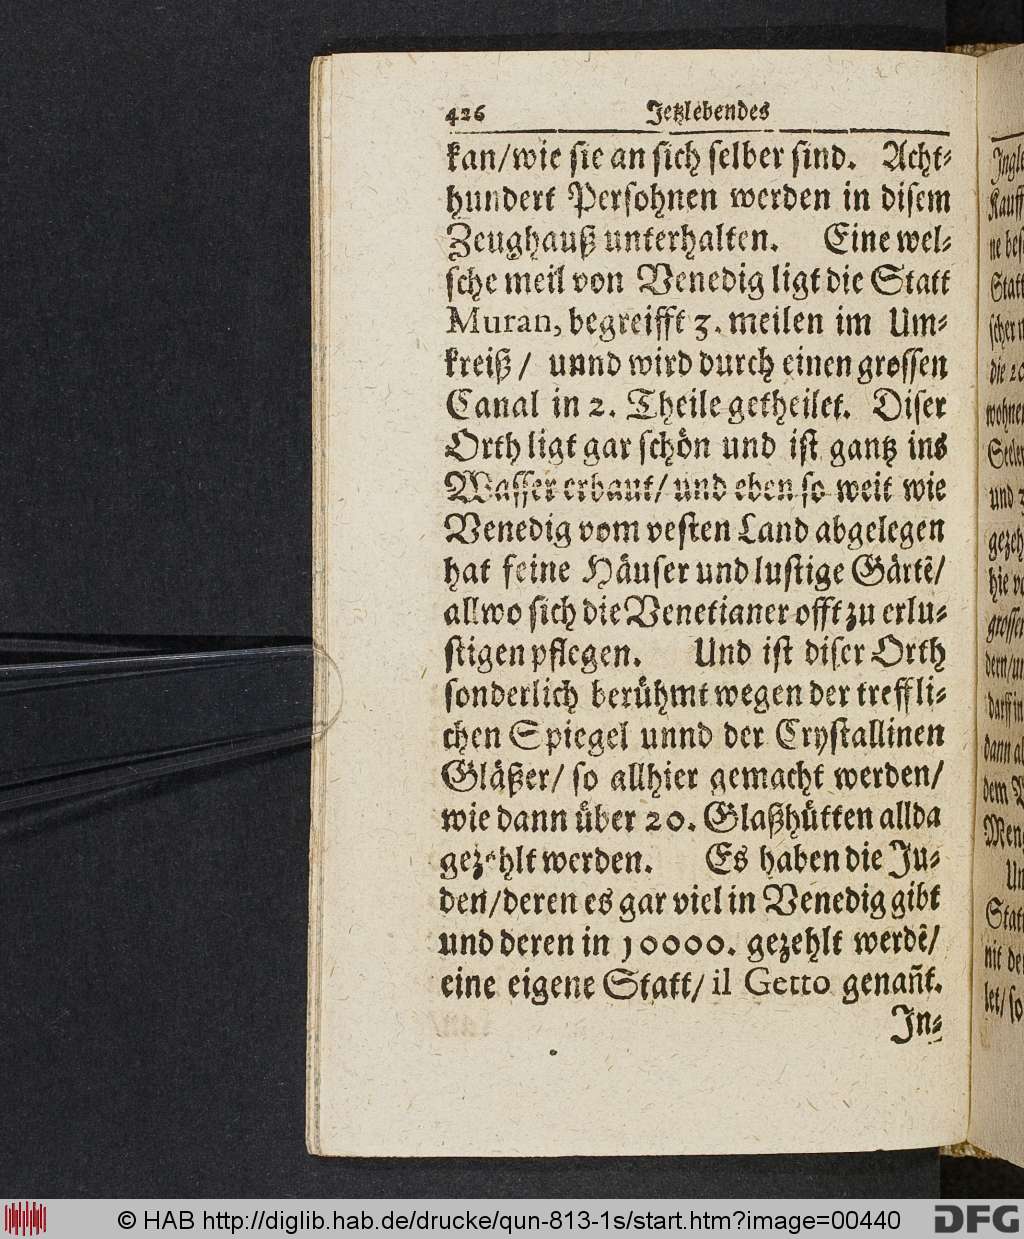 426 Jetzlebendes
kan/wie sie an sich selber sind. Acht-
hundert Persohnen werden in disem
Zeughauß unterhalten. Eine wel-
sche meil von Venedig ligt die Statt
Muran, begreifft 3. meilen im Um-
kreiß / unnd wird durch einen grossen
Canal in 2. Theile getheilet. Diser
Orth ligt gar schön und ist gantz ins
Wasser erbaut/ und eben so weit wie
Venedig vom vesten Land abgelegen
hat feine Häuser und lustige Gärtẽ/
allwo sich die Venetianer offt zu erlu-
stigen pflegen. Und ist diser Orth
sonderlich berühmt wegen der treffli-
chen Spiegel unnd der Crystallinen
Gläßer/ so allhier gemacht werden/
wie dann über 20. Glaßhütten allda
gezehlt werden. Es haben die Ju-
den/deren es gar viel in Venedig gibt
und deren in 10000. gezehlt werdẽ/
eine eigene Statt/ il Getto genañt.
In-
Kauff
Statt
die 20
wohne
und
hie
grossen
dern/
dann
dem
Statt
nit
let/ so
© HAB http://diglib.hab.de/drucke/qun-813-1s/start.htm?image=00440
DFG